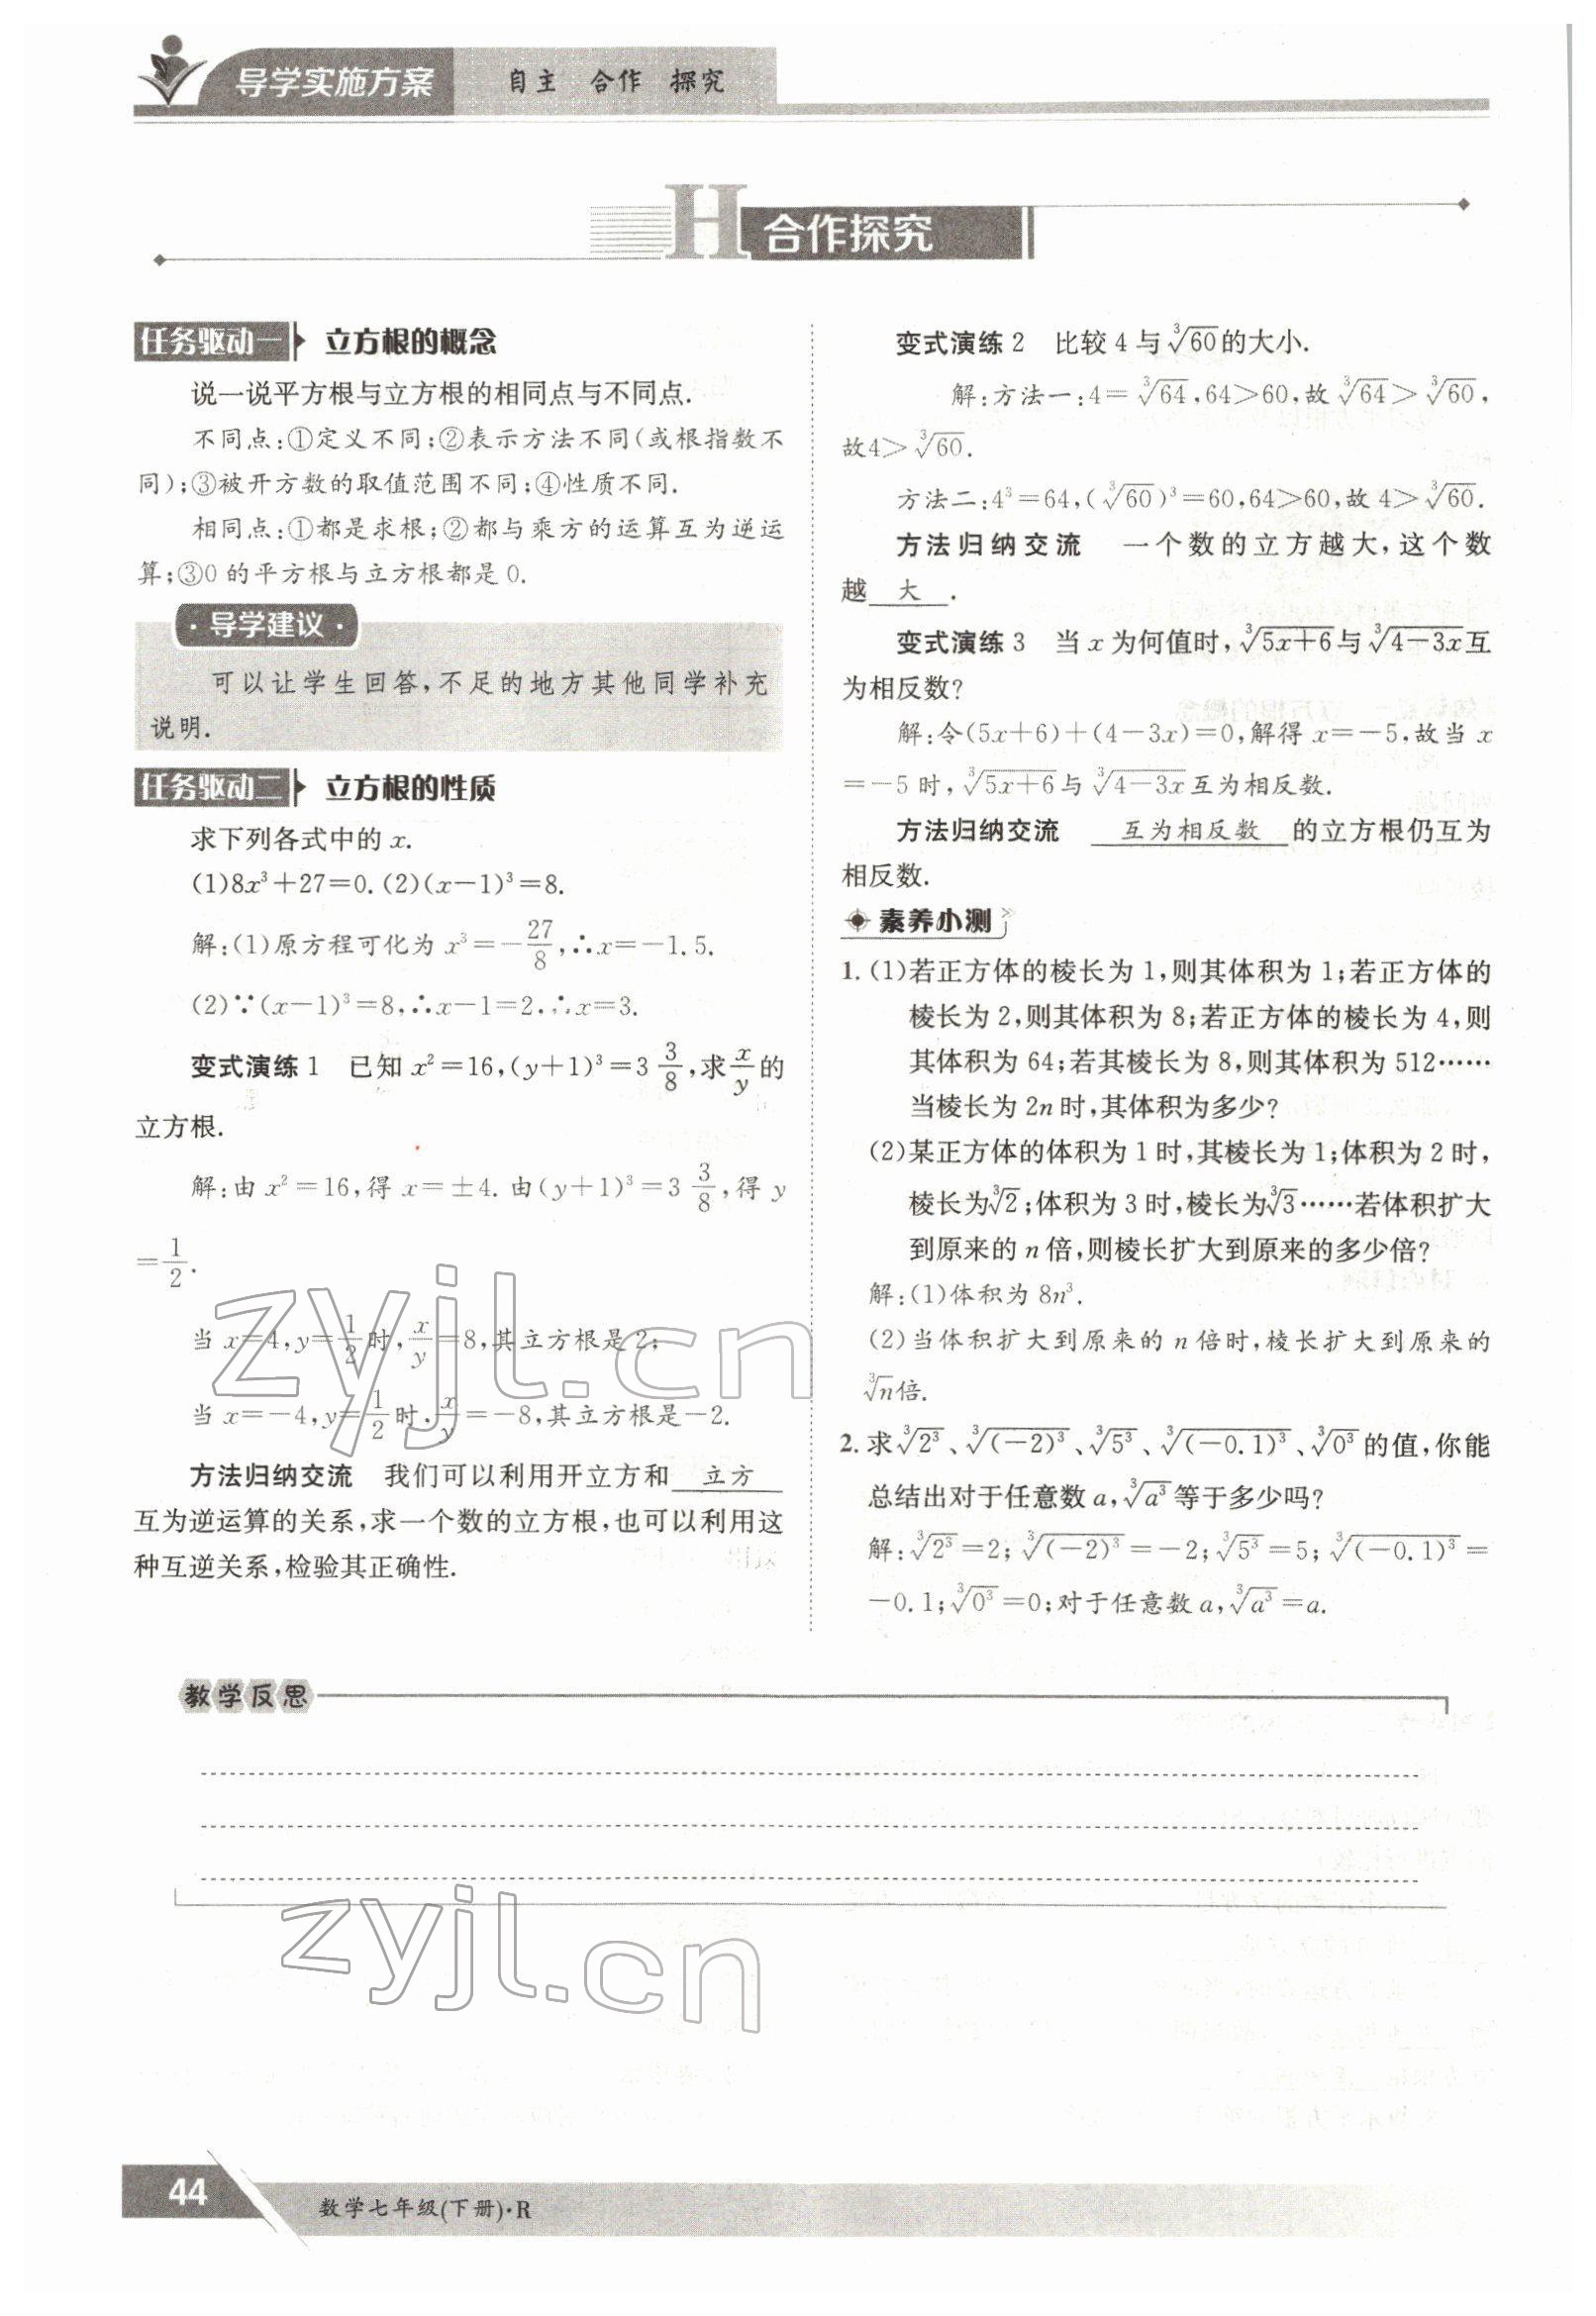 导学实施方案 自主 合作 探究
H 合作探究
任务驱动一 立方根的概念
说一说平方根与立方根的相同点与不同点.
不同点:①定义不同;②表示方法不同(或根指数不
同);③被开方数的取值范围不同;④性质不同.
相同点:①都是求根;②都与乘方的运算互为逆运
算;③0的平方根与立方根都是0.
·导学建议·
可以让学生回答,不足的地方其他同学补充
说明.
任务驱动二 立方根的性质
求下列各式中的 x.
(1)8x³+27=0.(2)(x-1)³=8.
解:(1)原方程可化为 x³=-27/8,∴x=-1.5.
(2)∵(x-1)³=8,∴x-1=2,∴x=3.
变式演练1 已知 x²=16,(y+1)³=3 3/8,求x/y的
立方根.
解:由 x²=16,得 x=±4.由(y+1)³=3 3/8,得 y
=1/2.
当 x=4,y=1/2时,x/y=8,其立方根是2;
当 x=-4,y=1/2时,x/y=-8,其立方根是-2.
方法归纳交流 我们可以利用开立方和 立方
互为逆运算的关系,求一个数的立方根,也可以利用这
种互逆关系,检验其正确性.
变式演练2 比较4与∛60的大小.
解:方法一:4=∛64,64>60,故∛64>∛60,
故4>∛60.
方法二:4³=64,(∛60)³=60,64>60,故4>∛60.
方法归纳交流 一个数的立方越大,这个数
越 大 .
变式演练3 当 x 为何值时,∛(5x+6)与∛(4-3x)互
为相反数?
解:令(5x+6)+(4-3x)=0,解得 x=-5,故当 x
=-5时,∛(5x+6)与∛(4-3x)互为相反数.
方法归纳交流 互为相反数 的立方根仍互为
相反数.
素养小测
1.(1)若正方体的棱长为1,则其体积为1;若正方体的
棱长为2,则其体积为8;若正方体的棱长为4,则
其体积为64;若其棱长为8,则其体积为512……
当棱长为2n时,其体积为多少?
(2)某正方体的体积为1时,其棱长为1;体积为2时,
棱长为∛2;体积为3时,棱长为∛3……若体积扩大
到原来的 n 倍,则棱长扩大到原来的多少倍?
解:(1)体积为8n³.
(2)当体积扩大到原来的 n 倍时,棱长扩大到原来的
∛n倍.
2.求∛2³、∛(-2)³、∛5³、∛(-0.1)³、∛0³的值,你能
总结出对于任意数 a,∛a³等于多少吗?
解:∛2³=2;∛(-2)³=-2;∛5³=5;∛(-0.1)³=
-0.1;∛0³=0;对于任意数 a,∛a³=a.
教学反思
zyjl.cn
zyjl.cn
44 数学七年级(下册)·R